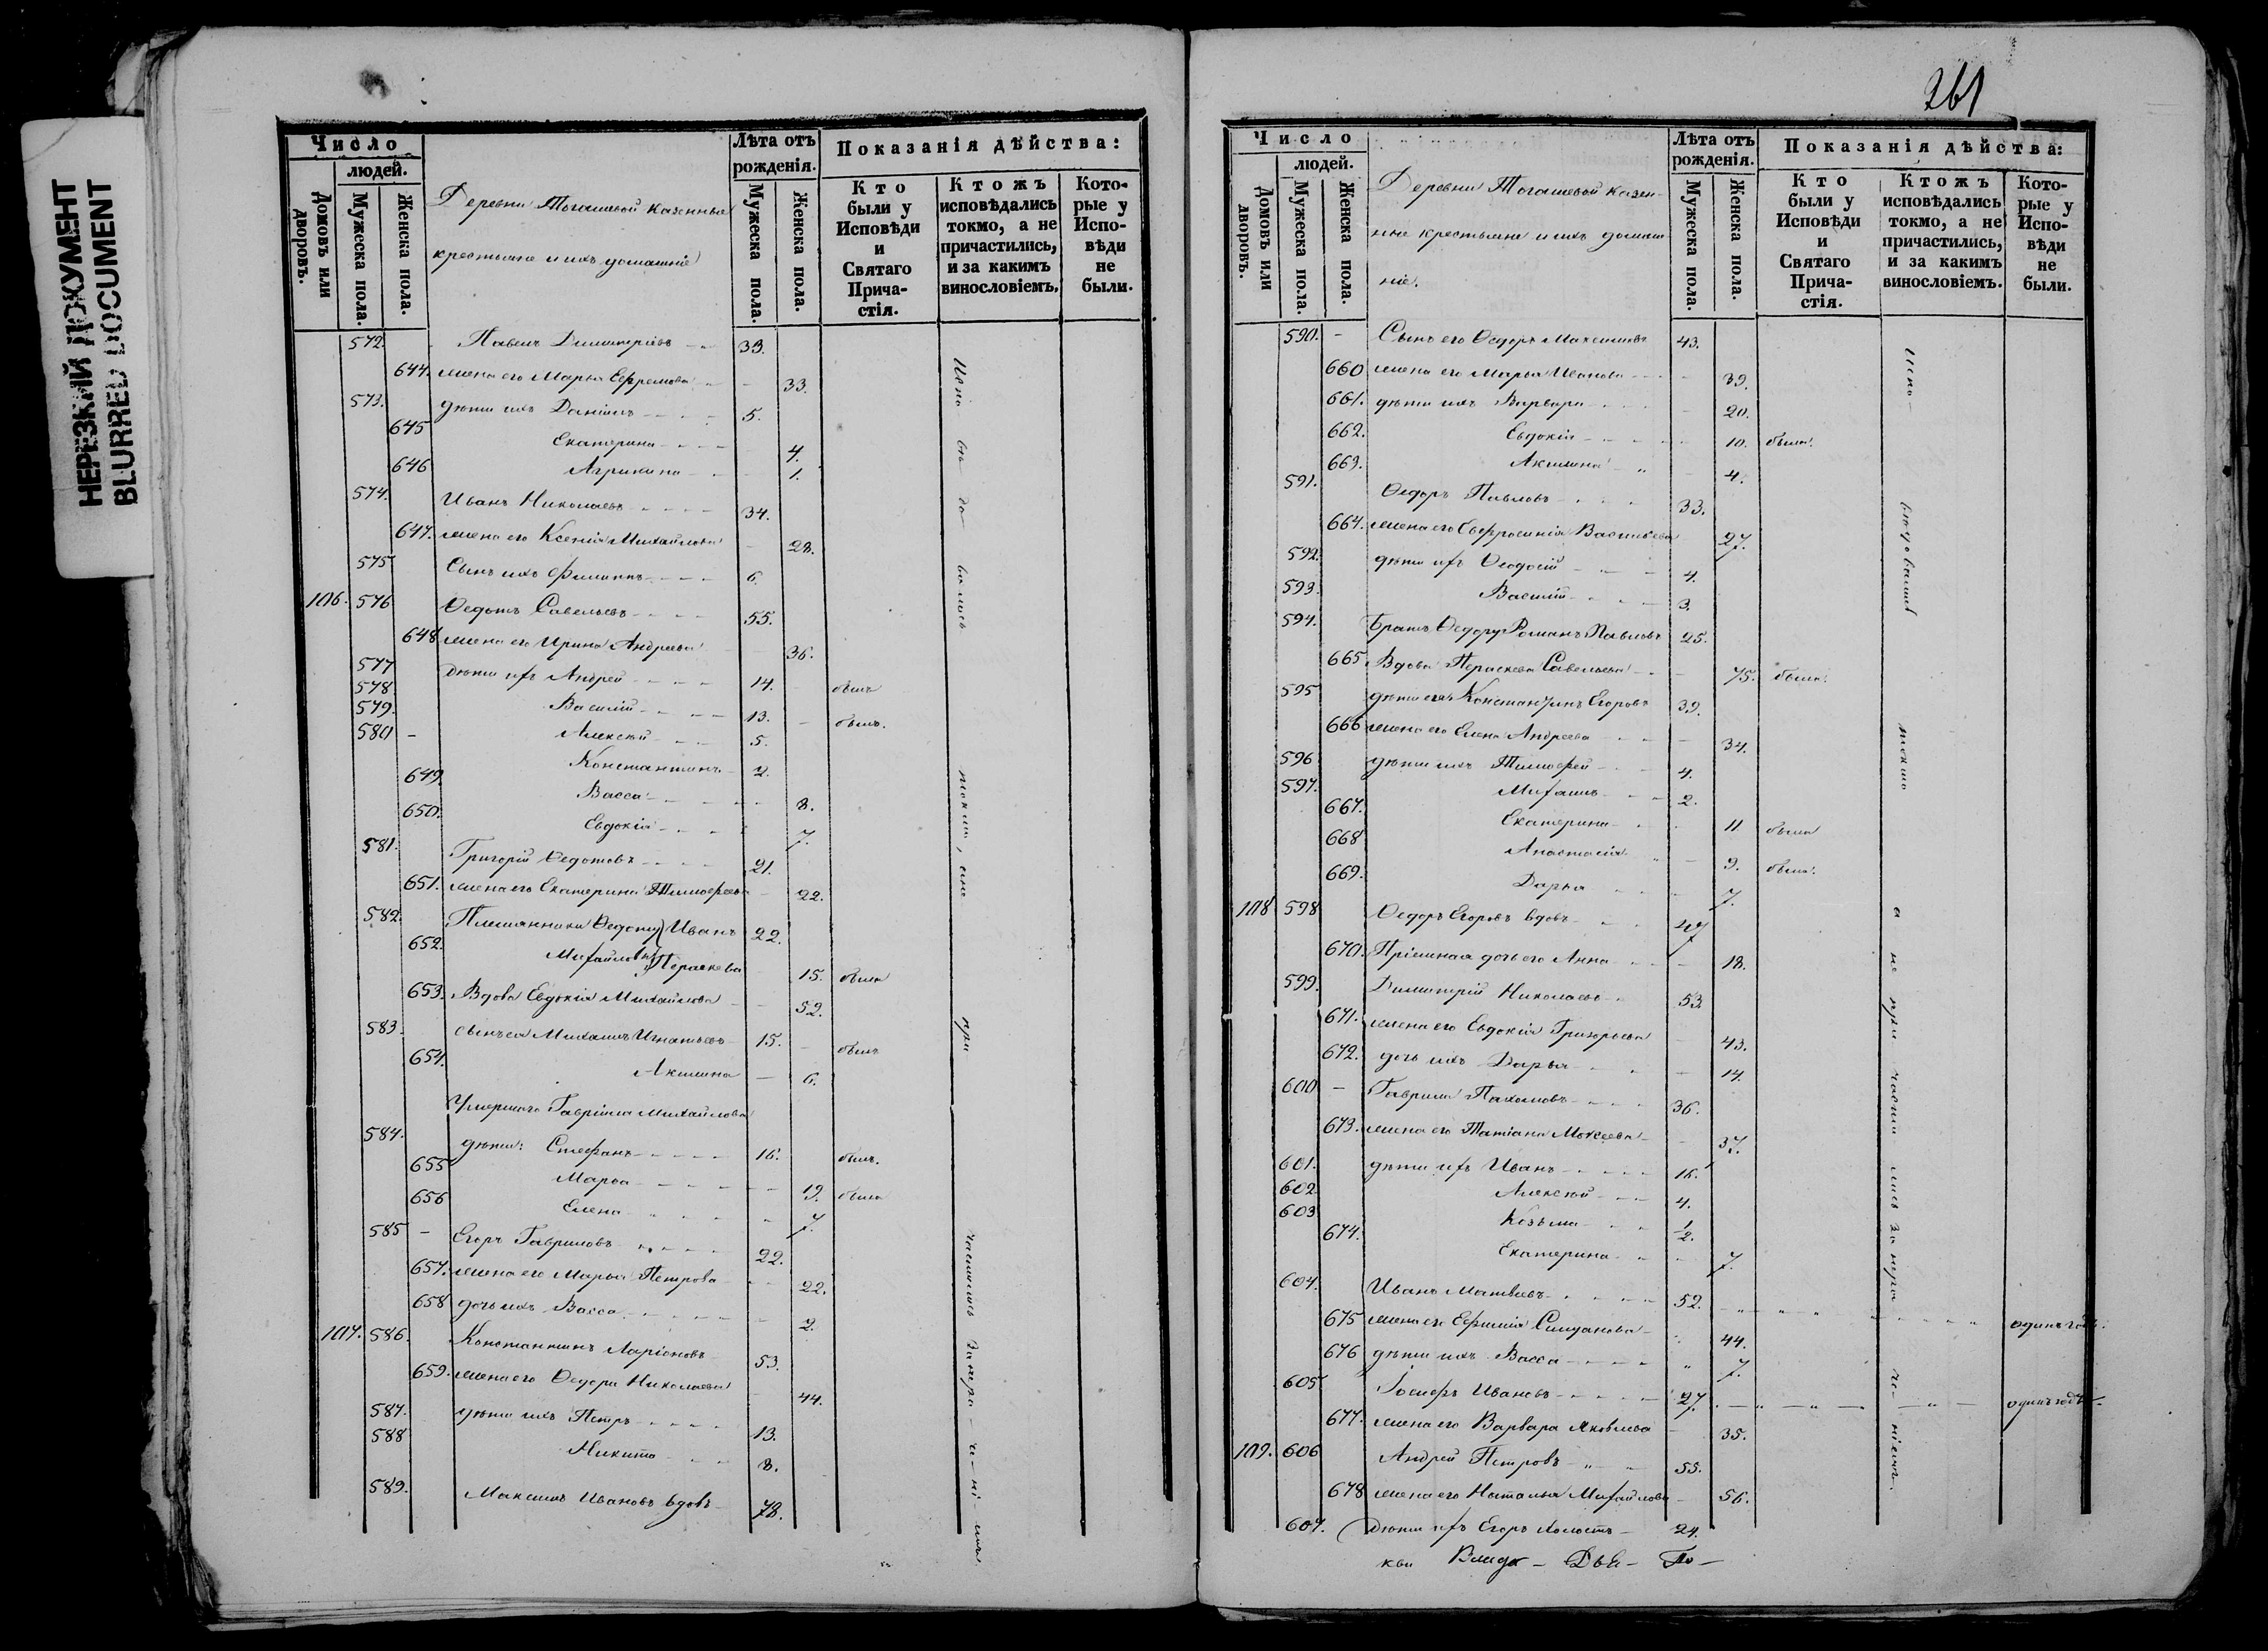 НЕРЕЗКИЙ ДОКУМЕНТ
BLURRED DOCUMENT
Число
людей.
Домовъ или дворовъ.
Мужеска пола.
Женска пола.
Деревни Тогашевой казенные
крестьяне и ихъ домашніе
Лѣта отъ рожденія.
Мужеска пола.
Женска пола.
Показанія дѣйства:
Кто были у Исповѣди и Святаго Причастія.
Ктожъ исповѣдались токмо, а не причастились, и за какимъ винословіемъ.
Которые у Исповѣди не были.
572. Павелъ Димитріевъ 33.
644. жена его Марья Ефремова 33.
573. дѣти ихъ Даніилъ 5.
645 Екатерина 4.
646 Агрипина 1.
574. Иванъ Николаевъ 34.
647. жена его Ксенія Михайлова 28.
575 Сынъ ихъ Филиппъ 6.
106. 576 Ѳедотъ Савельевъ 55.
648 жена его Ирина Андреева 36.
577 дѣти ихъ Андрей 14. былъ
578. Василій 13. былъ.
579. Алексѣй 5.
580 Константинъ 2.
649. Васса 8.
650. Евдокія 7.
581. Григорій Ѳедотовъ 21.
651. жена его Екатерина Тимоѳеева 22.
582. Племянники Ѳедоту Иванъ 22.
652. Михайловы Параскева 15. была
653. Вдова Евдокія Михайлова 52.
583. сынъ ея Михаилъ Игнатьевъ 15. былъ
654. Акилина 6.
Умершаго Гавріила Михайлова
584. дѣти: Стефанъ 16. былъ.
655 Марья 19. была
656 Елена 7.
585 Егоръ Гавриловъ 22.
657. жена его Марья Петрова 22.
658 дочь ихъ Васса 2.
107. 586. Константинъ Ларіоновъ 53.
659. жена его Ѳедора Николаева 44.
587. дѣти ихъ Петръ 13.
588 Никита 8.
589. Максимъ Ивановъ вдовъ 78.
261
Число
людей.
Домовъ или дворовъ.
Мужеска пола.
Женска пола.
Деревни Тогашевой казен-
ные крестьяне и ихъ домаш
ніе.
Лѣта отъ рожденія.
Мужеска пола.
Женска пола.
Показанія дѣйства:
Кто были у Исповѣди и Святаго Причастія.
Ктожъ исповѣдались токмо, а не причастились, и за какимъ винословіемъ.
Которые у Исповѣди не были.
590. Сынъ его Ѳедоръ Максимовъ 43.
660 жена его Марья Иванова 39.
661. дѣти ихъ Варвара 20.
662. Евдокія 10. была.
663. Акилина 4.
591. Ѳедоръ Павловъ 33.
664. жена его Евфросинія Васильева 27.
592. дѣти ихъ Ѳеодосій 4.
593. Василій 3.
594. Братъ Ѳедору Романъ Павловъ 25.
665 Вдова Параскева Савельева 75. была.
595 дѣти ея Константинъ Егоровъ 39.
666 жена его Елена Андреева 34.
596 дѣти ихъ Тимоѳей 4.
597. Михаилъ 2.
667. Екатерина 11 была
668 Анастасія 9. была.
669. Дарья 7.
108 598 Ѳедоръ Егоровъ вдовъ 47
670. Пріемная дочь его Анна 18.
599. Димитрій Николаевъ 53.
671. жена его Евдокія Григорьева 43.
672. дочь ихъ Дарья 14.
600 Гаврила Пахомовъ 36.
673. жена его Татіана Моѵсеева 37.
601. дѣти ихъ Иванъ 16.
602 Алексѣй 4.
603 Козьма 1/2.
674. Екатерина 7.
604. Иванъ Матвѣевъ 52. одинъ годъ.
675 жена его Ефимія 44.
676 дѣти ихъ Васса 7.
605 Іосифъ Ивановъ 27. одинъ годъ
677. жена его Варвара Яковлева 35.
109. 606 Андрей Петровъ 55.
678 жена его Наталья Михайлова 56.
607. дѣти ихъ Егоръ холостъ 24.